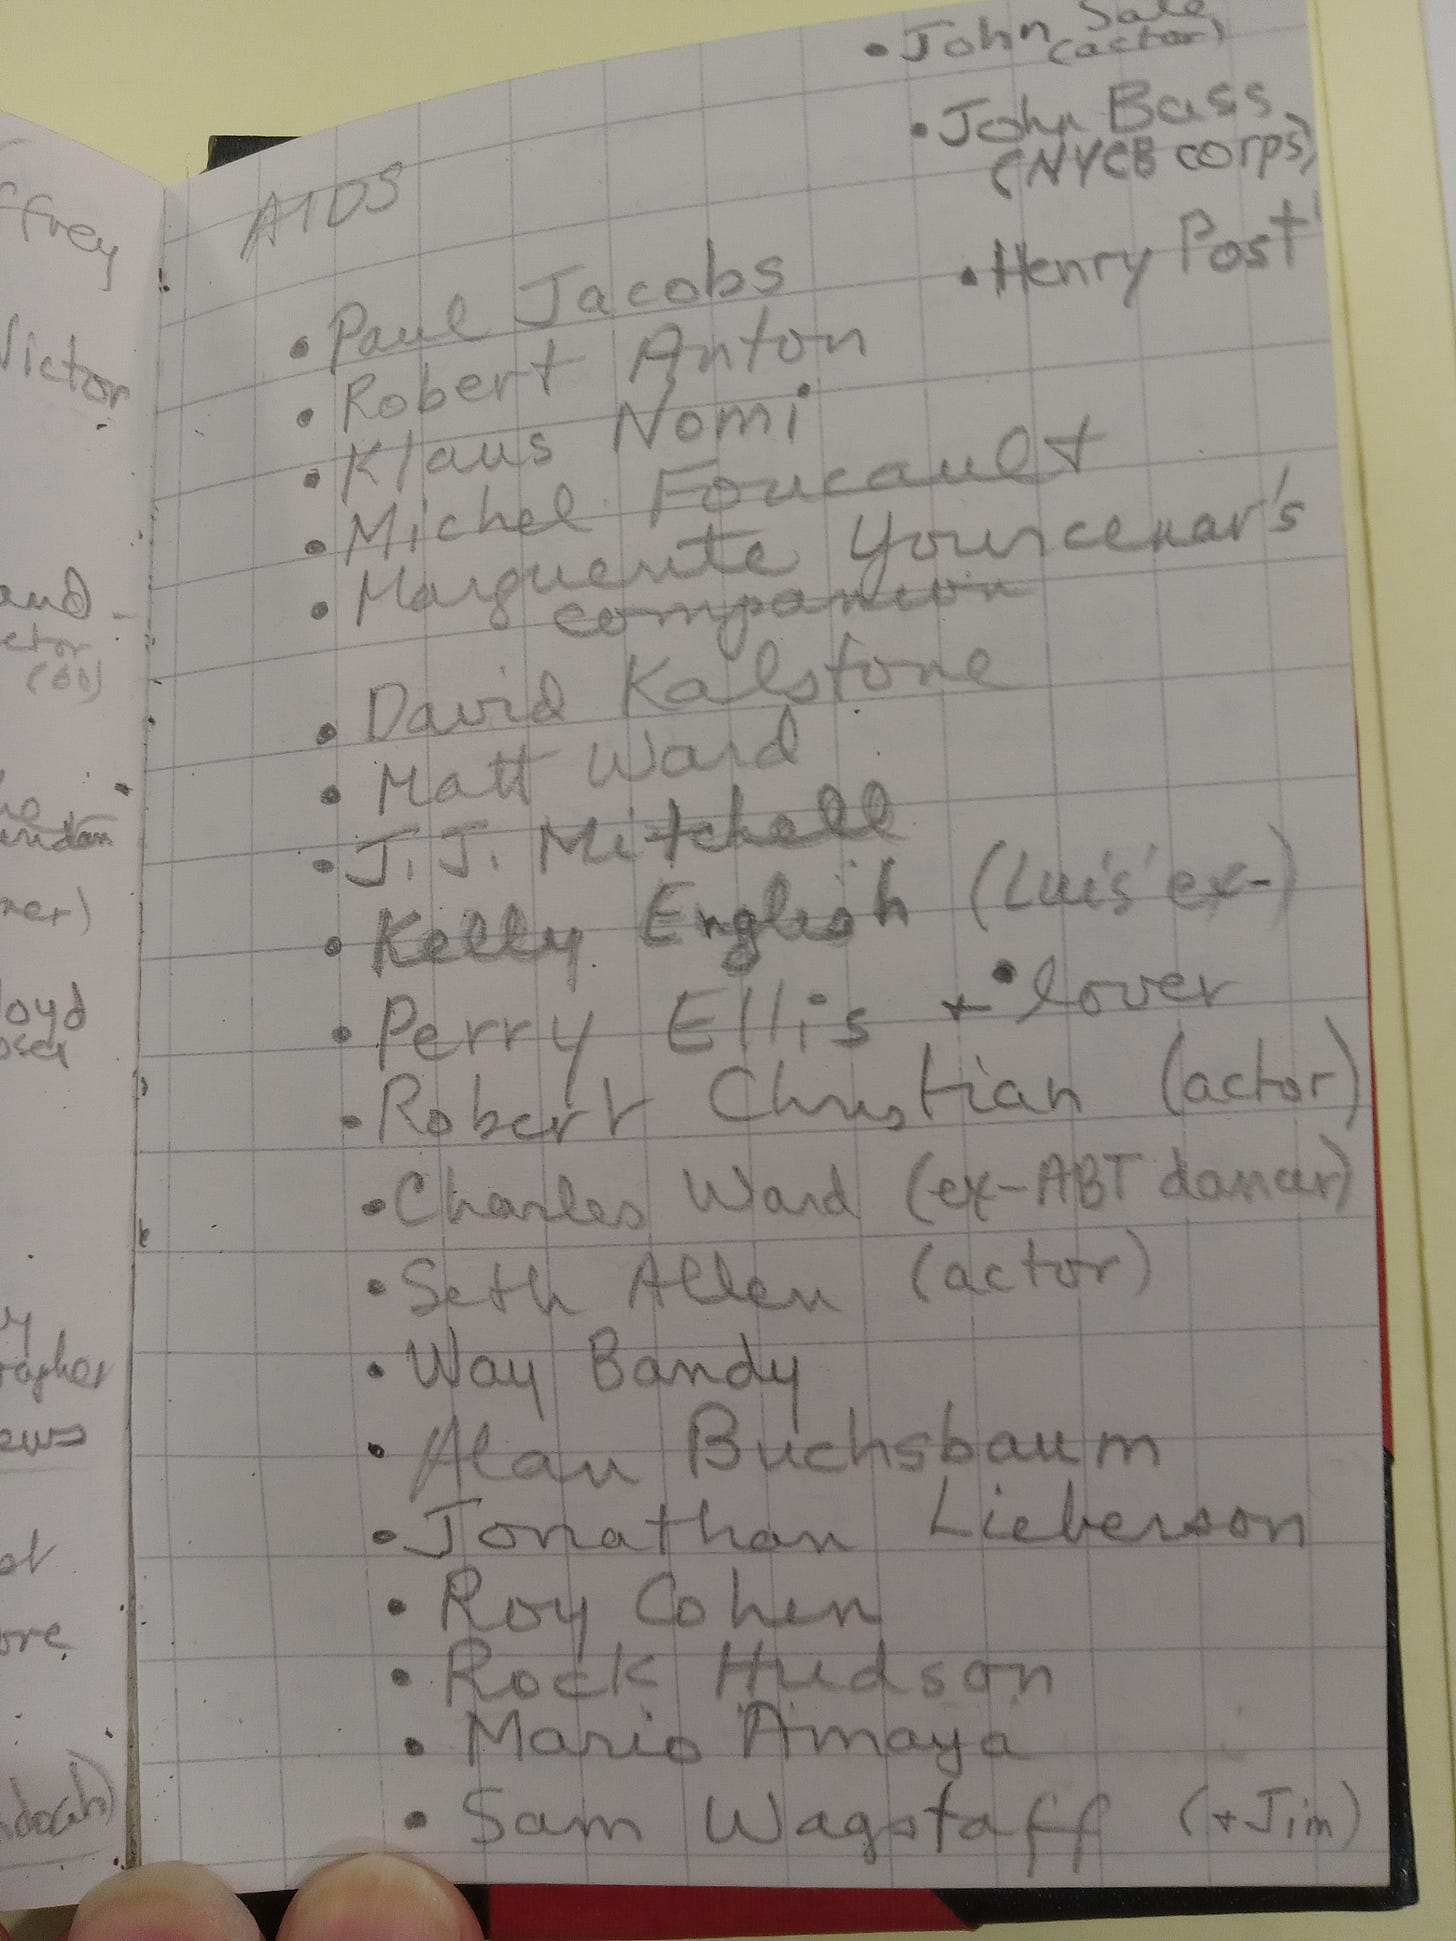 ffrey
Victor
and -
ctor
mer)
loyd
rapher
ews
ore.
John Sale
(actor)
John Bass
(NYCB corps)
Henry Post
AIDS
• Paul Jacobs
• Robert Anton
• Klaus Nomi
• Michel Foucault
• Marguerite Yourcenar's
companion
• David Kalstone
• Matt Ward
• J.J. Mitchell
• Kelly English (Luis' ex-)
• Perry Ellis + • lover
• Robert Christian (actor)
• Charles Ward (ex-ABT dancer)
• Seth Allen (actor)
• Way Bandy
• Alan Buchsbaum
• Jonathan Lieberson
• Roy Cohen
• Rock Hudson
• Mario Amaya
• Sam Wagstaff (+ Jim)